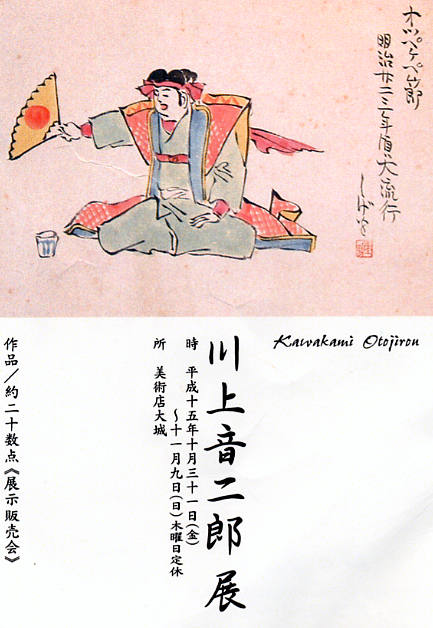 オツペケペ節
明治廿二三年頃大流行
Kawakami Otojirou
川上音二郎 展
時 平成十五年十月三十一日(金)
～十一月九日(日)木曜日定休
所 美術店大城
作品／約二十数点《展示販売会》